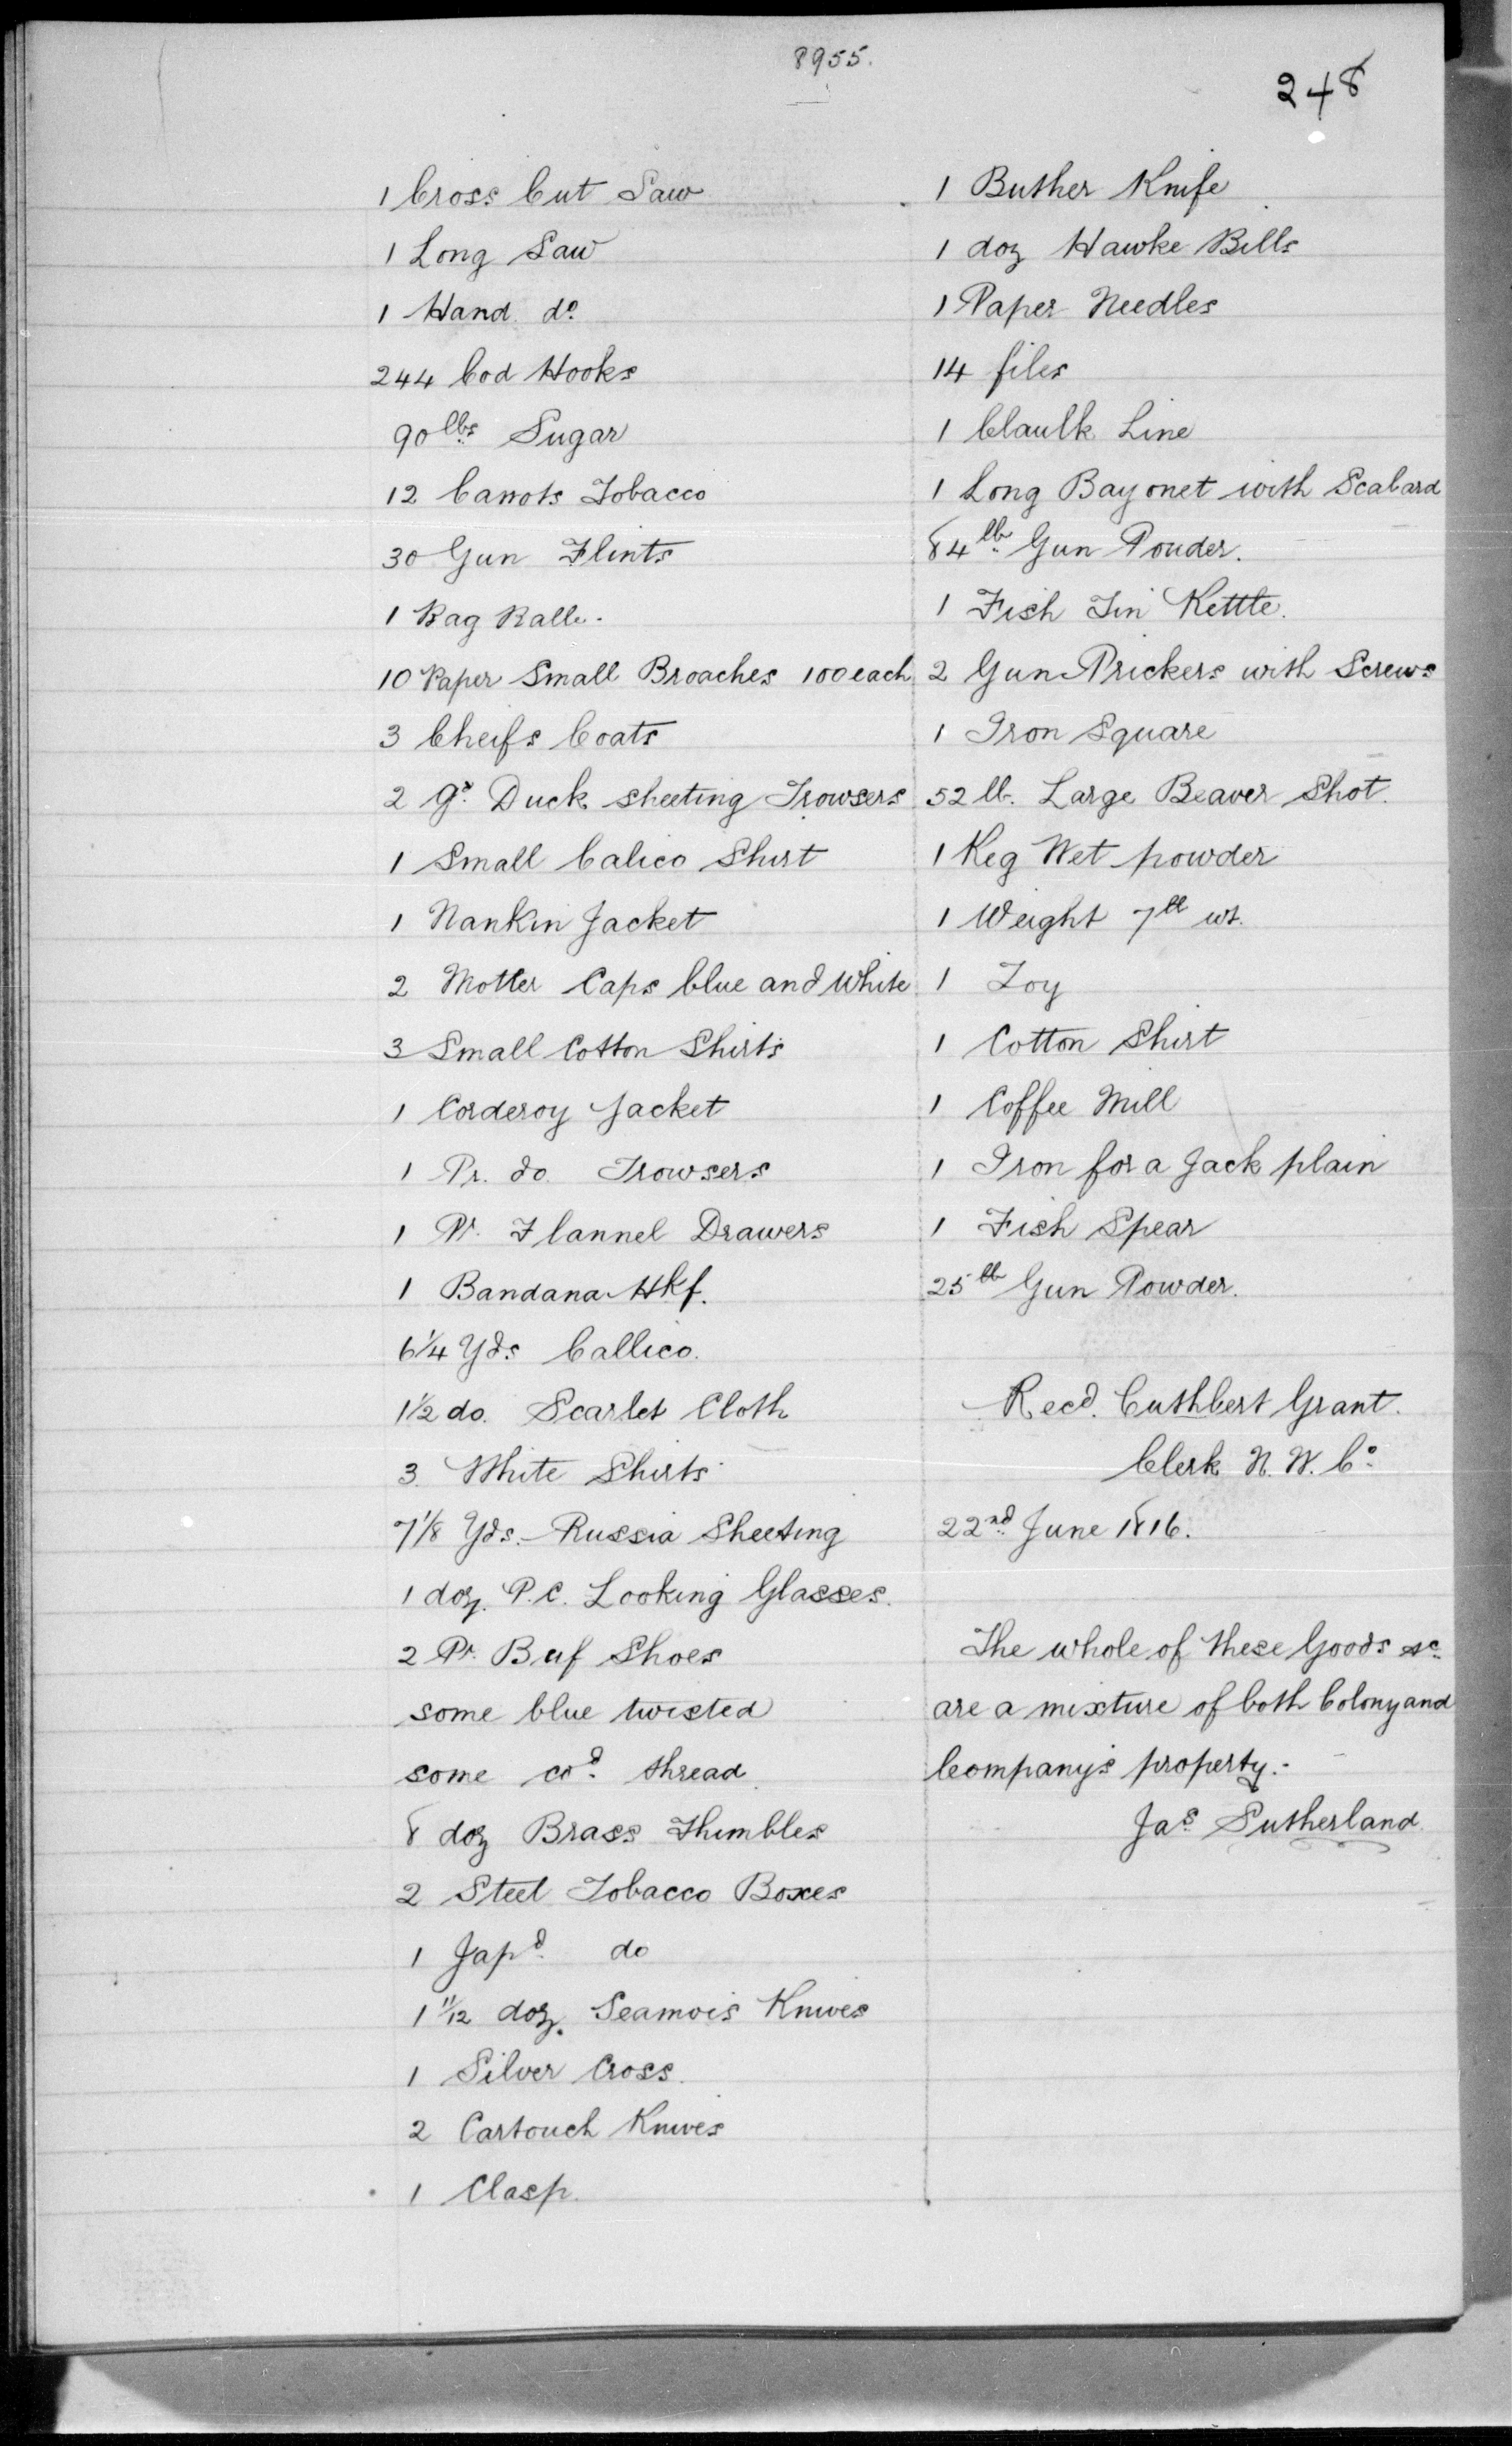 8955.
248
1 Cross Cut Saw
1 Long Saw
1 Hand do.
244 Cod Hooks
90 lbs Sugar
12 Carrots Tobacco
30 Gun Flints
1 Bag Balls.
10 Paper Small Broaches 100 each
3 Cheifs Coats
2 Duck sheeting Trowsers
1 Small Calico Shirt
1 Nankin Jacket
2 Caps blue and White
3 Small Cotton Shirts
1 Corderoy Jacket
1 Pr. do. Trowsers
1 Pr. Flannel Drawers
1 Bandana Hkf.
6 1/4 Yds Callico.
1 1/2 do. Scarlet Cloth
3 White Shirts
7 1/8 Yds. Russia Sheeting
1 doz. P.C. Looking Glasses.
2 Pr. Buf Shoes
some blue twisted
some thread
8 doz Brass Thimbles
2 Steel Tobacco Boxes
1 Japd. do
1 11/12 doz. Knives
1 Silver Cross.
2 Cartouch Knives
1 Clasp.
1 Buther Knife
1 doz Hawke Bills
1 Paper Needles
14 files
1 Line
1 Long Bayonet with Scabard
84 lb. Gun Pouder.
1 Fish Tin Kettle.
2 Gun Prickers with Screws
1 Iron Square
52 lb. Large Beaver Shot.
1 Keg Wet powder
1 Weight 7 lb wt.
1 Toy
1 Cotton Shirt
1 Coffee Mill
1 Iron for a Jack plain
1 Fish Spear
25 lb Gun Powder.
Recd. Cuthbert Grant.
Clerk N. W. Co.
22nd June 1816.
The whole of these Goods &c.
are a mixture of both Colony and
Company's property.-
Jas. Sutherland.